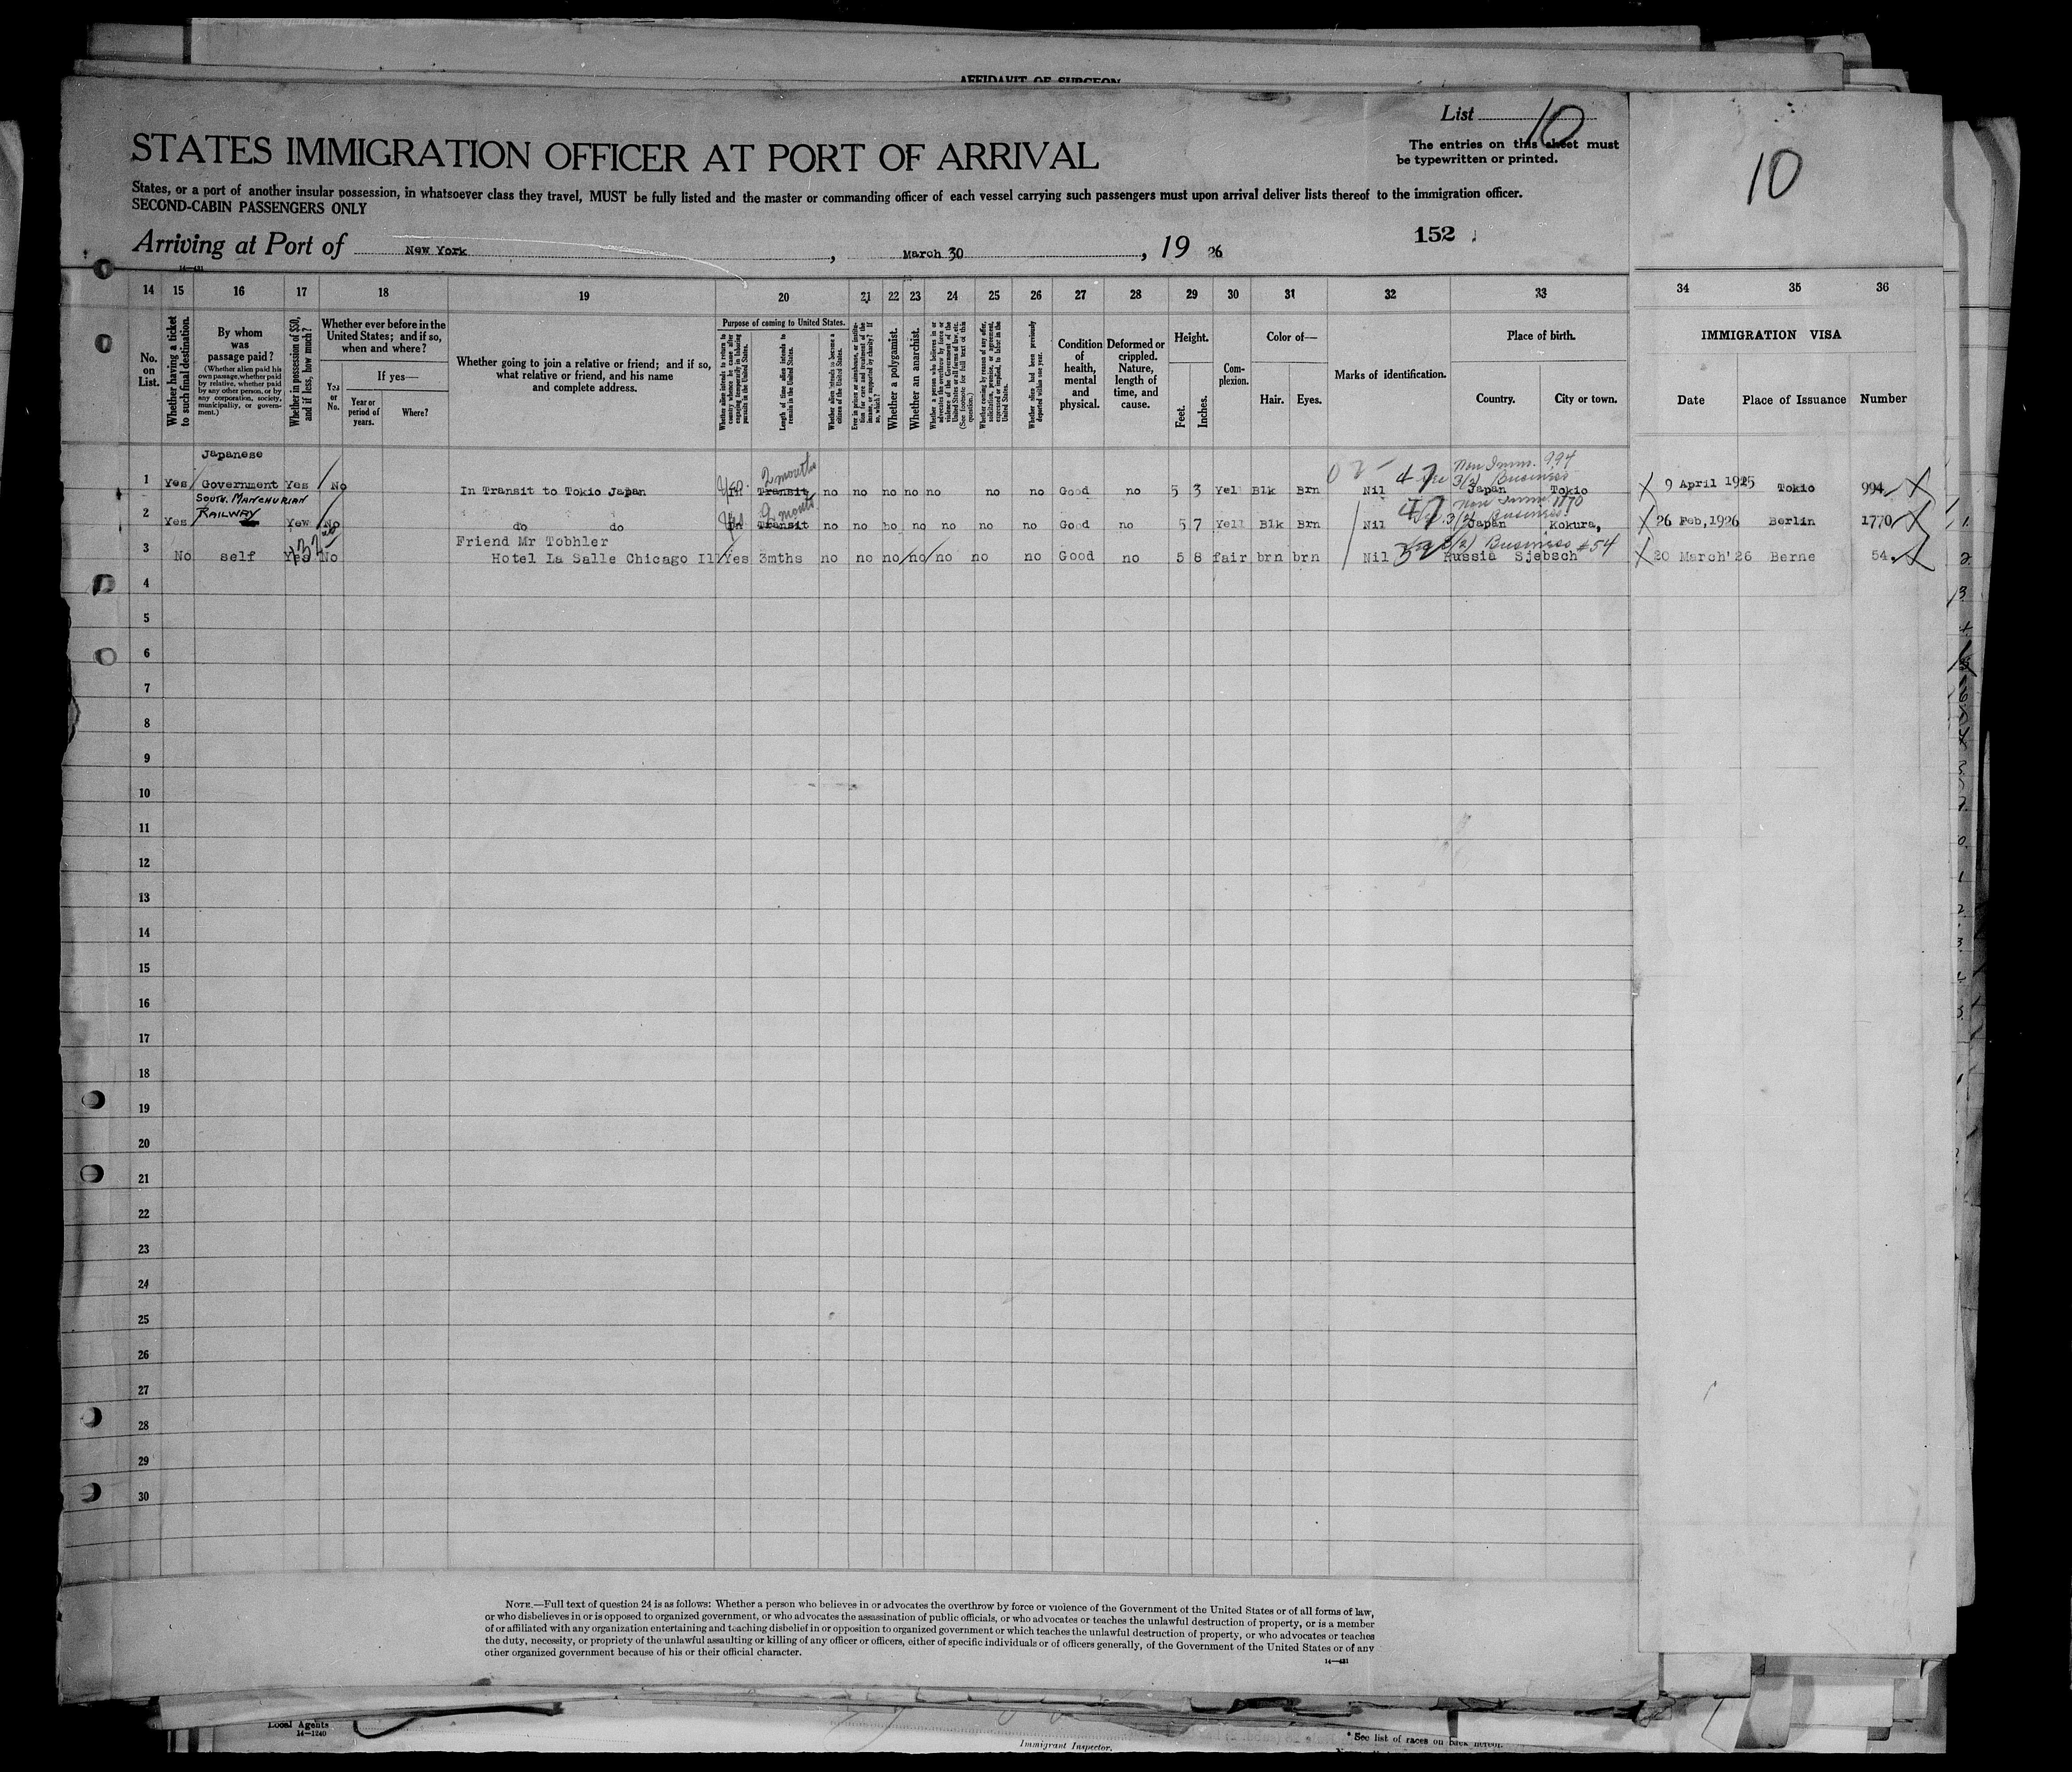 AFFIDAVIT OF SURGEON
List 10
The entries on this sheet must
be typewritten or printed.
10
STATES IMMIGRATION OFFICER AT PORT OF ARRIVAL
States, or a port of another insular possession, in whatsoever class they travel, MUST be fully listed and the master or commanding officer of each vessel carrying such passengers must upon arrival deliver lists thereof to the immigration officer.
SECOND-CABIN PASSENGERS ONLY
152
Arriving at Port of New York, March 30, 19 26
14—431
14 15 16 17 18 19 20 21 22 23 24 25 26 27 28 29 30 31 32 33 34 35 36
No. on List.
Whether having a ticket to such final destination.
By whom was passage paid?
(Whether alien paid his own passage, whether paid by relative, whether paid by any other person, or by any corporation, society, municipality, or government.)
Whether in possession of $50, and if less, how much?
Whether ever before in the United States; and if so, when and where?
Yes or No.
If yes—
Year or period of years.
Where?
Whether going to join a relative or friend; and if so, what relative or friend, and his name and complete address.
Purpose of coming to United States.
Whether alien intends to return to country whence he came after engaging temporarily in laboring pursuits in the United States.
Length of time alien intends to remain in the United States.
Whether alien intends to become a citizen of the United States.
Ever in prison or almshouse, or institution for care and treatment of the insane, or supported by charity? If so, which?
Whether a polygamist.
Whether an anarchist.
Whether a person who believes in or advocates the overthrow by force or violence of the Government of the United States or all forms of law, etc. (See footnote for full text of this question.)
Whether coming by reason of any offer, solicitation, promise, or agreement, expressed or implied, to labor in the United States.
Whether alien had been previously deported within one year.
Condition of health, mental and physical.
Deformed or crippled. Nature, length of time, and cause.
Height.
Feet. Inches.
Complexion.
Color of—
Hair. Eyes.
Marks of identification.
Place of birth.
Country. City or town.
IMMIGRATION VISA
Date Place of Issuance Number
Japanese 2 months Non Imm. 994
1 Yes Government Yes No In Transit to Tokio Japan Yes In Transit no no no no no no no Good no 5 3 Yel Blk Brn Nil 3/2) Business Japan Tokio 9 April 1925 Tokio 994
SOUTH MANCHURIAN 2 months Non Imm. 1770
2 Yes RAILWAY Yew No do do Yes In Transit no no bo no no no no Good no 5 7 Yell Blk Brn Nil 3/2) Business Japan Kokura, 26 Feb,1926 Berlin 1770
Friend Mr Tobhler 3/2) Business #54
3 No self Yes No Hotel La Salle Chicago Ill Yes 3mths no no no no no no no Good no 5 8 fair brn brn Nil Russia Sjebsch 20 March'26 Berne 54.
4
5
6
7
8
9
10
11
12
13
14
15
16
17
18
19
20
21
22
23
24
25
26
27
28
29
30
NOTE.—Full text of question 24 is as follows: Whether a person who believes in or advocates the overthrow by force or violence of the Government of the United States or of all forms of law,
or who disbelieves in or is opposed to organized government, or who advocates the assassination of public officials, or who advocates or teaches the unlawful destruction of property, or is a member
of or affiliated with any organization entertaining and teaching disbelief in or opposition to organized government or which teaches the unlawful destruction of property, or who advocates or teaches
the duty, necessity, or propriety of the unlawful assaulting or killing of any officer or officers, either of specific individuals or of officers generally, of the Government of the United States or of any
other organized government because of his or their official character.
14—431
Local Agents
14—1240
Immigrant Inspector.
* See list of races on back hereof.